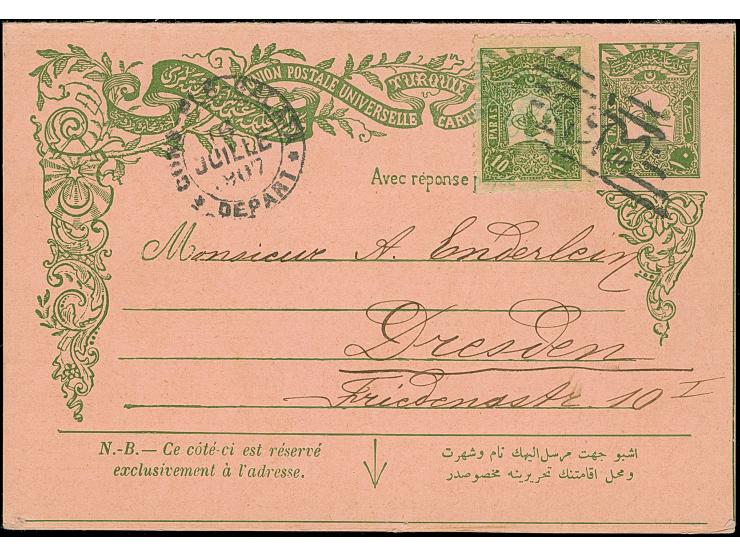 UNION POSTALE UNIVERSELLE
TURQUIE
CART
PARAS 10
GALATA
JUILLE
DEPART
Avec réponse
Monsieur A. Enderlein
Dresden
Friedenastr. 10 I
N.-B.— Ce côté-ci est réservé
exclusivement à l'adresse.
اشبو جهت مرسل اليهك نام و شهرت
و محل اقامتنك تحريرينه مخصوصدر